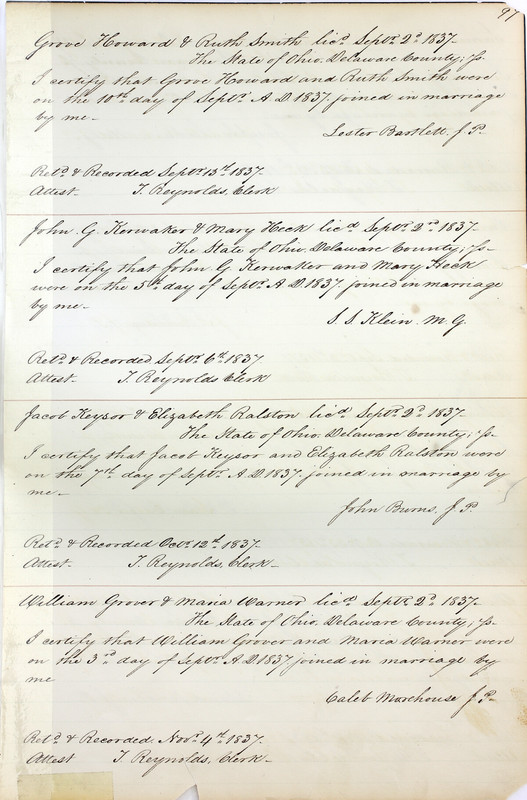 97
Grove Howard & Ruth Smith licd. Septr. 2d. 1837-
The State of Ohio. Delaware County; ss-
I certify that Grove Howard and Ruth Smith were
on the 10th day of Septr. A.D. 1837. joined in marriage
by me-
Lester Bartlett. J.P.
Retd. & Recorded Septr. 13d. 1837.
Attest- T. Reynolds, Clerk
John. G. Kerwaker & Mary Heck licd. Septr. 2nd. 1837.-
The State of Ohio. Delaware County; ss-
I certify that John. G. Kerwaker and Mary Heck
were on the 5th day of Septr. A.D. 1837. joined in marriage
by me-
S. S. Klein. M.G.
Retd. & Recorded Septr. 6th. 1837
Attest- T. Reynolds Clerk
Jacob Keysor & Elizabeth Ralston licd. Septr. 2d. 1837.
The State of Ohio. Delaware County; ss-
I certify that Jacob Keysor and Elizabeth Ralston were
on the 7th day of Septr. A.D. 1837. joined in marriage by
me-
John Burns, J.P.
Retd. & Recorded Octr. 12th. 1837-
Attest. T. Reynolds, Clerk-
William Grover & Maria Warner licd. Septr. 2d. 1837-
The State of Ohio. Delaware County; ss-
I certify that William Grover and Maria Warner were
on the 3rd day of Septr. A.D. 1837 joined in marriage by
me
Caleb Morehouse J.P-
Retd. & Recorded. Novr. 4th. 1837-
Attest T. Reynolds, Clerk-